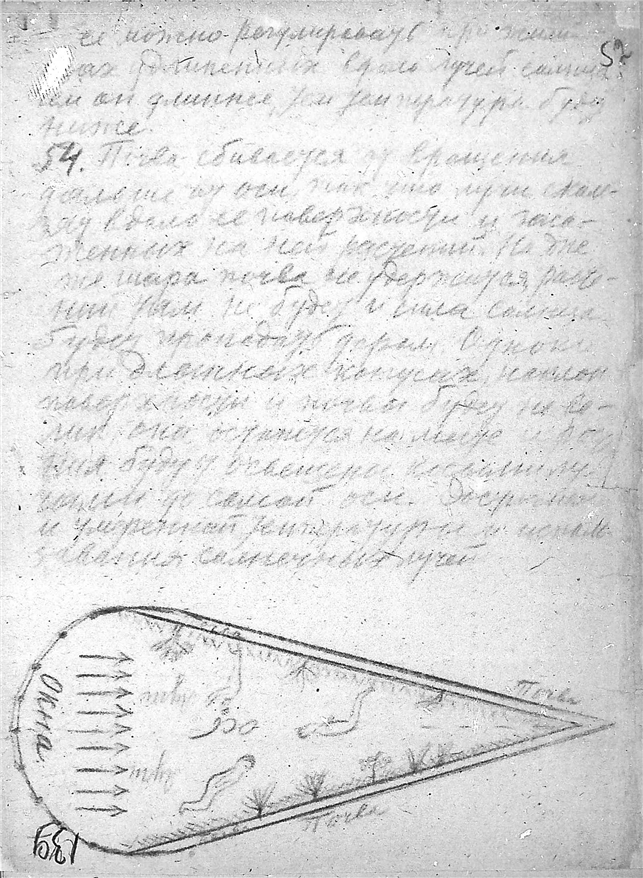 ее можно регулировать при жили
щах удлиненных вдоль лучей солнца
чем он длиннее, тем температура будет
ниже.
54. Почва сбивается от вращения
дальше от оси, так что лучи сколь-
зят вдоль ее поверхности и заса-
женных на ней растений. На дне
же шара почва не удержится, расте-
ний там не будет и сила солнца
будет пропадать даром. Однако
при длинных конусах, наклон
поверхности и почвы будет не ве-
лик, она останется на месте и
будут освещены косыми лу-
чами до самой оси.
и умеренной температуры и исполь
зования солнечных лучей
Почва
Окна
лучи
ось
лучи
Почва
139